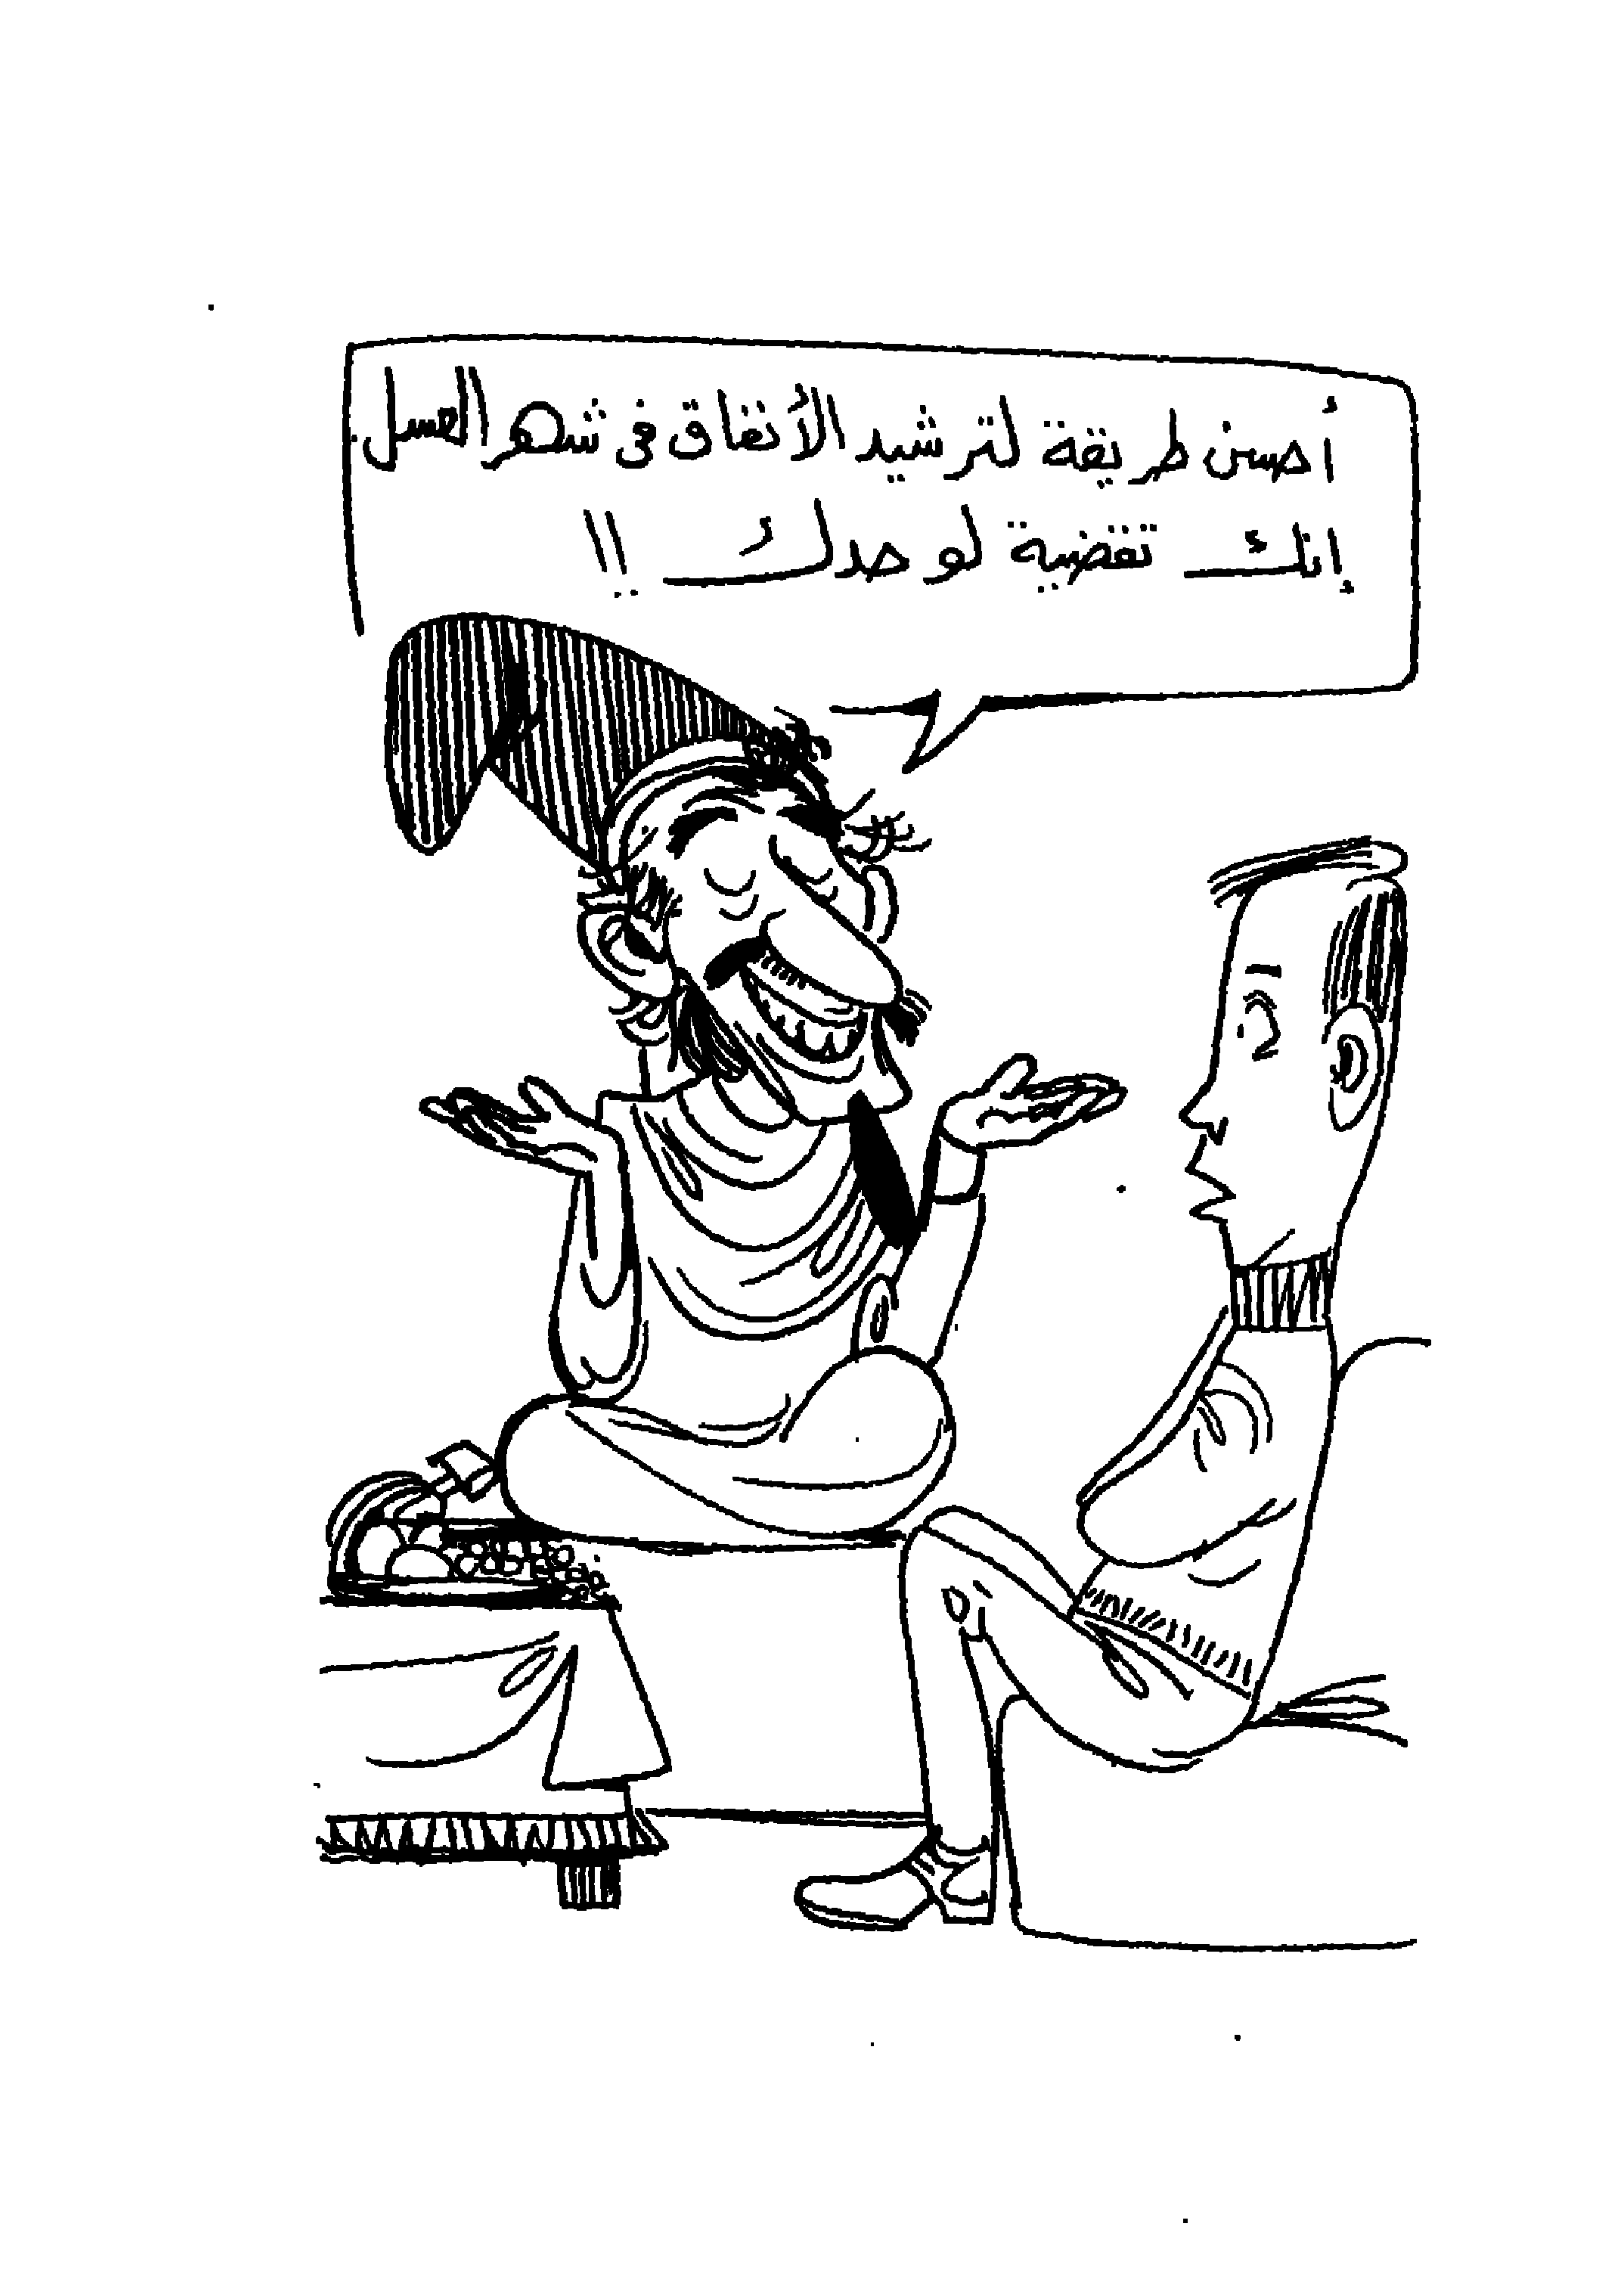 أحسن طريقة لترشيد الأنفاق فى شهر العسل
إنك تقضية لوحدك !!